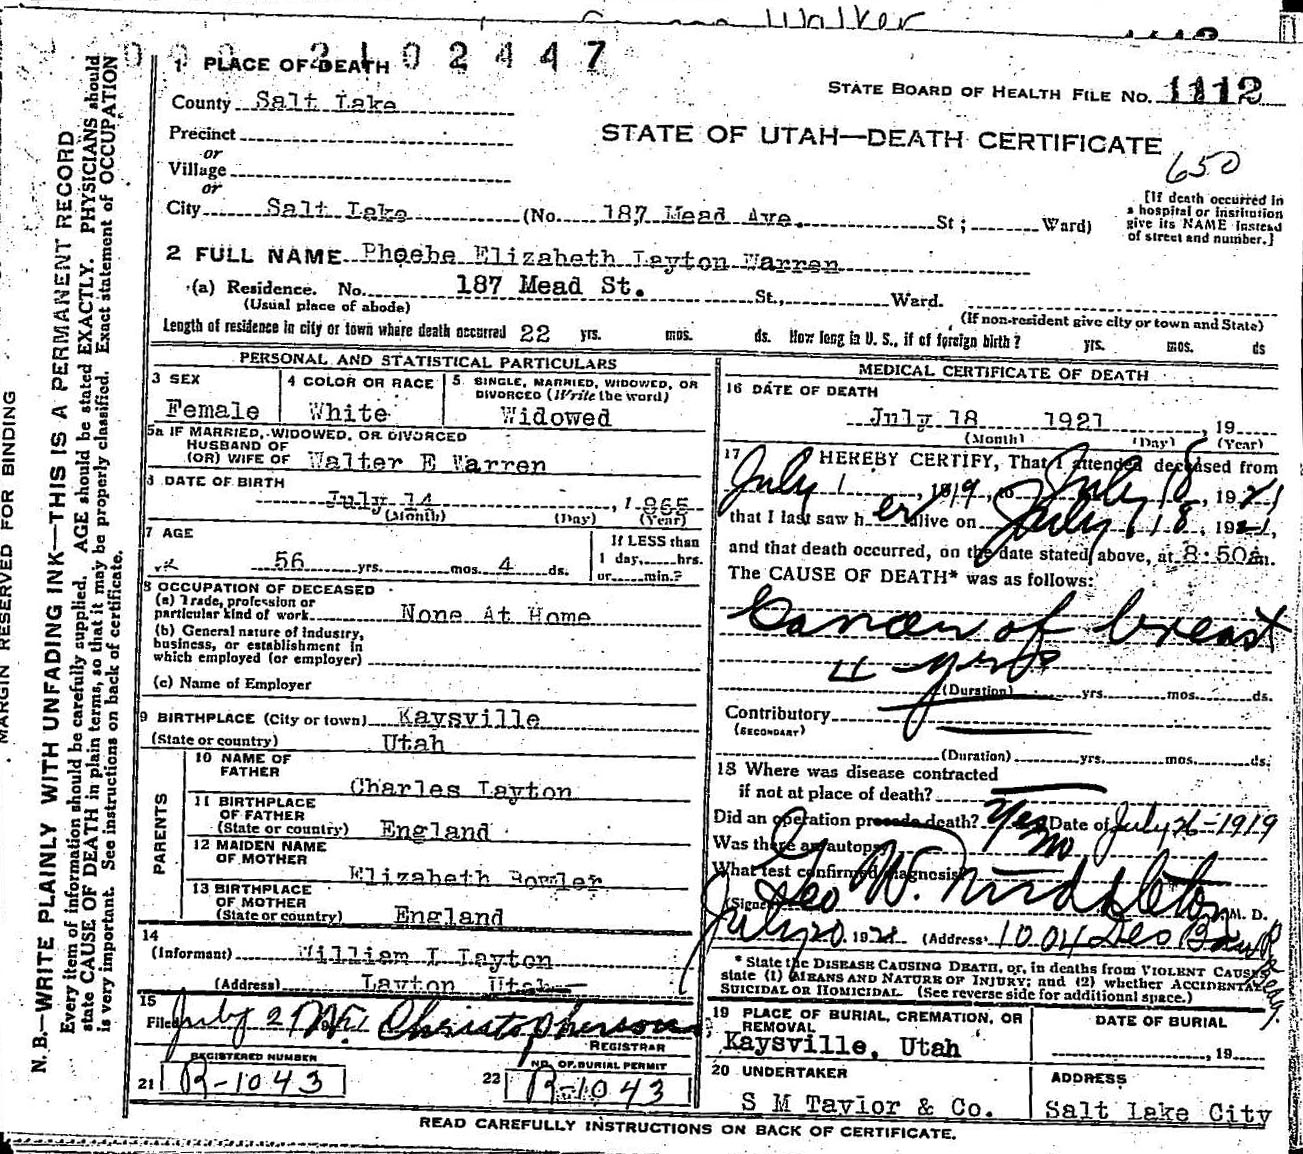 Walker
0 0 0 2 1 0 2 4 4 7
1 PLACE OF DEATH
STATE BOARD OF HEALTH FILE NO. 1112
County Salt Lake
STATE OF UTAH—DEATH CERTIFICATE
650
Precinct
or
Village
or
City Salt Lake (No. 187 Mead Ave. St; Ward)
[If death occurred in
a hospital or institution
give its NAME instead
of street and number.]
2 FULL NAME Phoebe Elizabeth Layton Warren
(a) Residence. No. 187 Mead St. St., Ward.
(Usual place of abode)
(If non-resident give city or town and State)
Length of residence in city or town where death occurred 22 yrs. mos. ds. How long in U. S., if of foreign birth? yrs. mos. ds
PERSONAL AND STATISTICAL PARTICULARS
3 SEX
Female
4 COLOR OR RACE
White
5 SINGLE, MARRIED, WIDOWED, OR
DIVORCED (Write the word)
Widowed
5a IF MARRIED, WIDOWED, OR DIVORCED
HUSBAND OF
(OR) WIFE OF Walter E Warren
DATE OF BIRTH
July 14, 1865
(Month) (Day) (Year)
7 AGE
56 yrs. mos. 4 ds.
If LESS than
1 day, hrs.
or min.?
8 OCCUPATION OF DECEASED
(a) Trade, profession or
particular kind of work None At Home
(b) General nature of industry,
business, or establishment in
which employed (or employer)
(c) Name of Employer
9 BIRTHPLACE (City or town) Kaysville
(State or country) Utah
PARENTS
10 NAME OF
FATHER
Charles Layton
11 BIRTHPLACE
OF FATHER
(State or country) England
12 MAIDEN NAME
OF MOTHER
Elizabeth Bowler
13 BIRTHPLACE
OF MOTHER
(State or country) England
14
(Informant) William L Layton
(Address) Layton Utah
15
Filed July 2 Christopherson
REGISTRAR
21 REGISTERED NUMBER
R-1043
22 NO. OF BURIAL PERMIT
R-1043
MEDICAL CERTIFICATE OF DEATH
16 DATE OF DEATH
July 18 1921, 19
(Month) (Day) (Year)
17 I HEREBY CERTIFY, That I attended deceased from
July 1, 1919, to July 18, 1921
that I last saw her alive on July 18, 1921,
and that death occurred, on the date stated above, at 8:50a m.
The CAUSE OF DEATH* was as follows:
Cancer of breast
4 yrs
(Duration) yrs. mos. ds.
Contributory
(SECONDARY)
(Duration) yrs. mos. ds.
18 Where was disease contracted
if not at place of death?
Did an operation precede death? Yes Date of July 26-1919
Was there an autopsy no
What test confirmed diagnosis
(Signed) Geo W. Middleton M. D.
July 20, 192 (Address) 1004 Deseret
* State the DISEASE CAUSING DEATH, or, in deaths from VIOLENT CAUSES
state (1) MEANS AND NATURE OF INJURY; and (2) whether ACCIDENTAL,
SUICIDAL OR HOMICIDAL. (See reverse side for additional space.)
19 PLACE OF BURIAL, CREMATION, OR
REMOVAL
Kaysville, Utah
DATE OF BURIAL
, 19
20 UNDERTAKER
S M Taylor & Co.
ADDRESS
Salt Lake City
READ CAREFULLY INSTRUCTIONS ON BACK OF CERTIFICATE.
MARGIN RESERVED FOR BINDING
N. B.—WRITE PLAINLY WITH UNFADING INK—THIS IS A PERMANENT RECORD
Every item of information should be carefully supplied. AGE should be stated EXACTLY. PHYSICIANS should
state CAUSE OF DEATH in plain terms, so that it may be properly classified. Exact statement of OCCUPATION
is very important. See instructions on back of certificate.